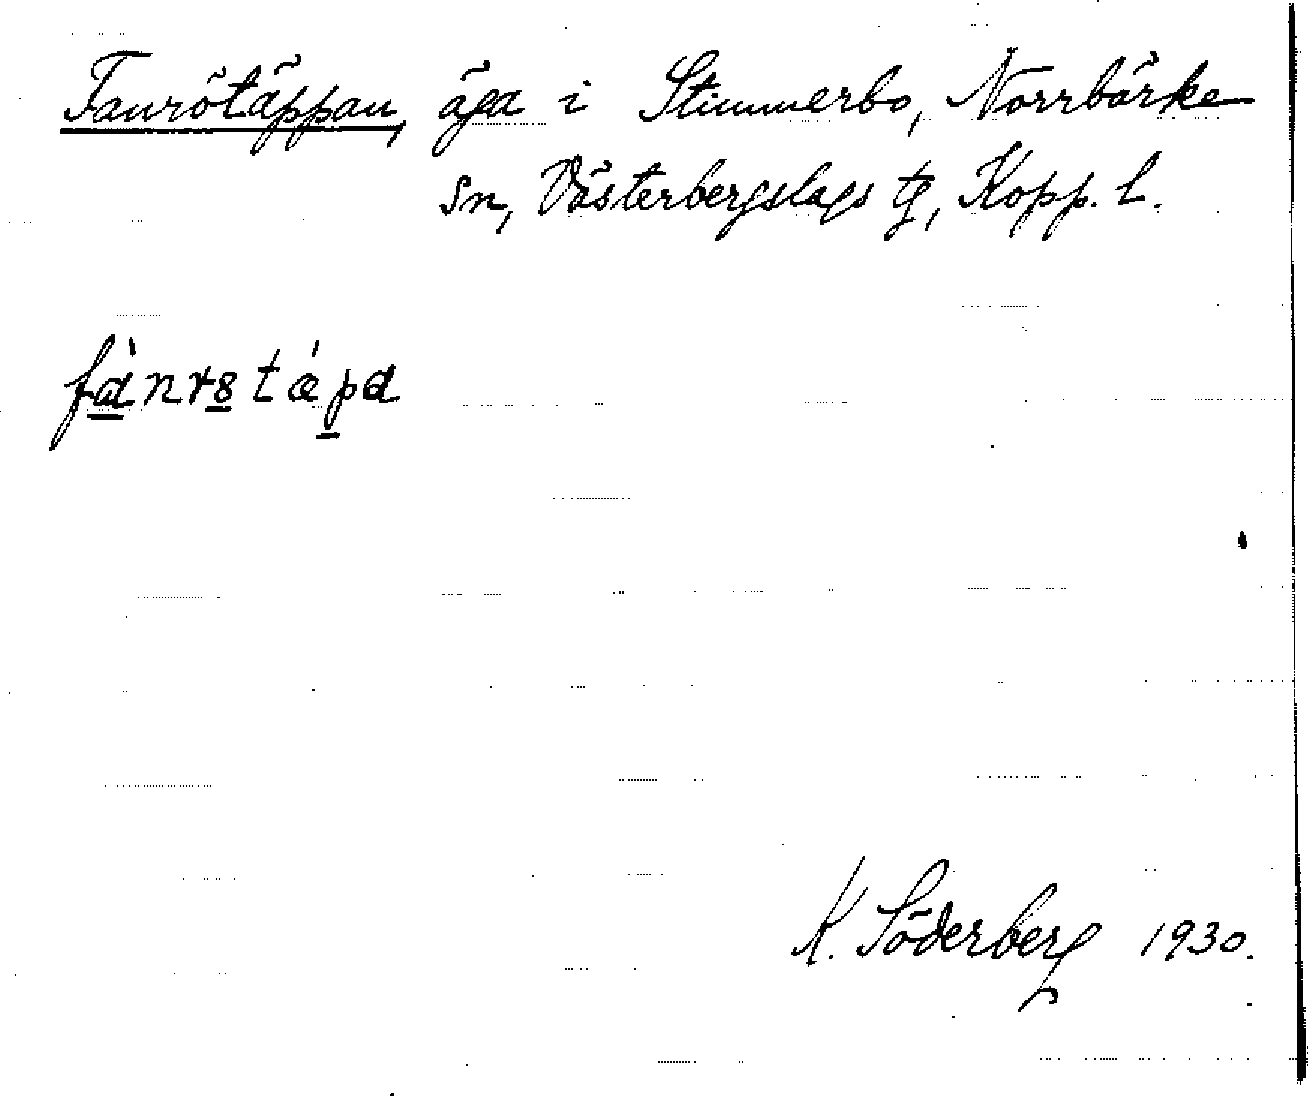 Fanrötäppan, äga i Stimmerbo, Norrbärke
sn, Västerbergslags tg, Kopp. l.
fànr8 tǽpa
K. Söderberg 1930.